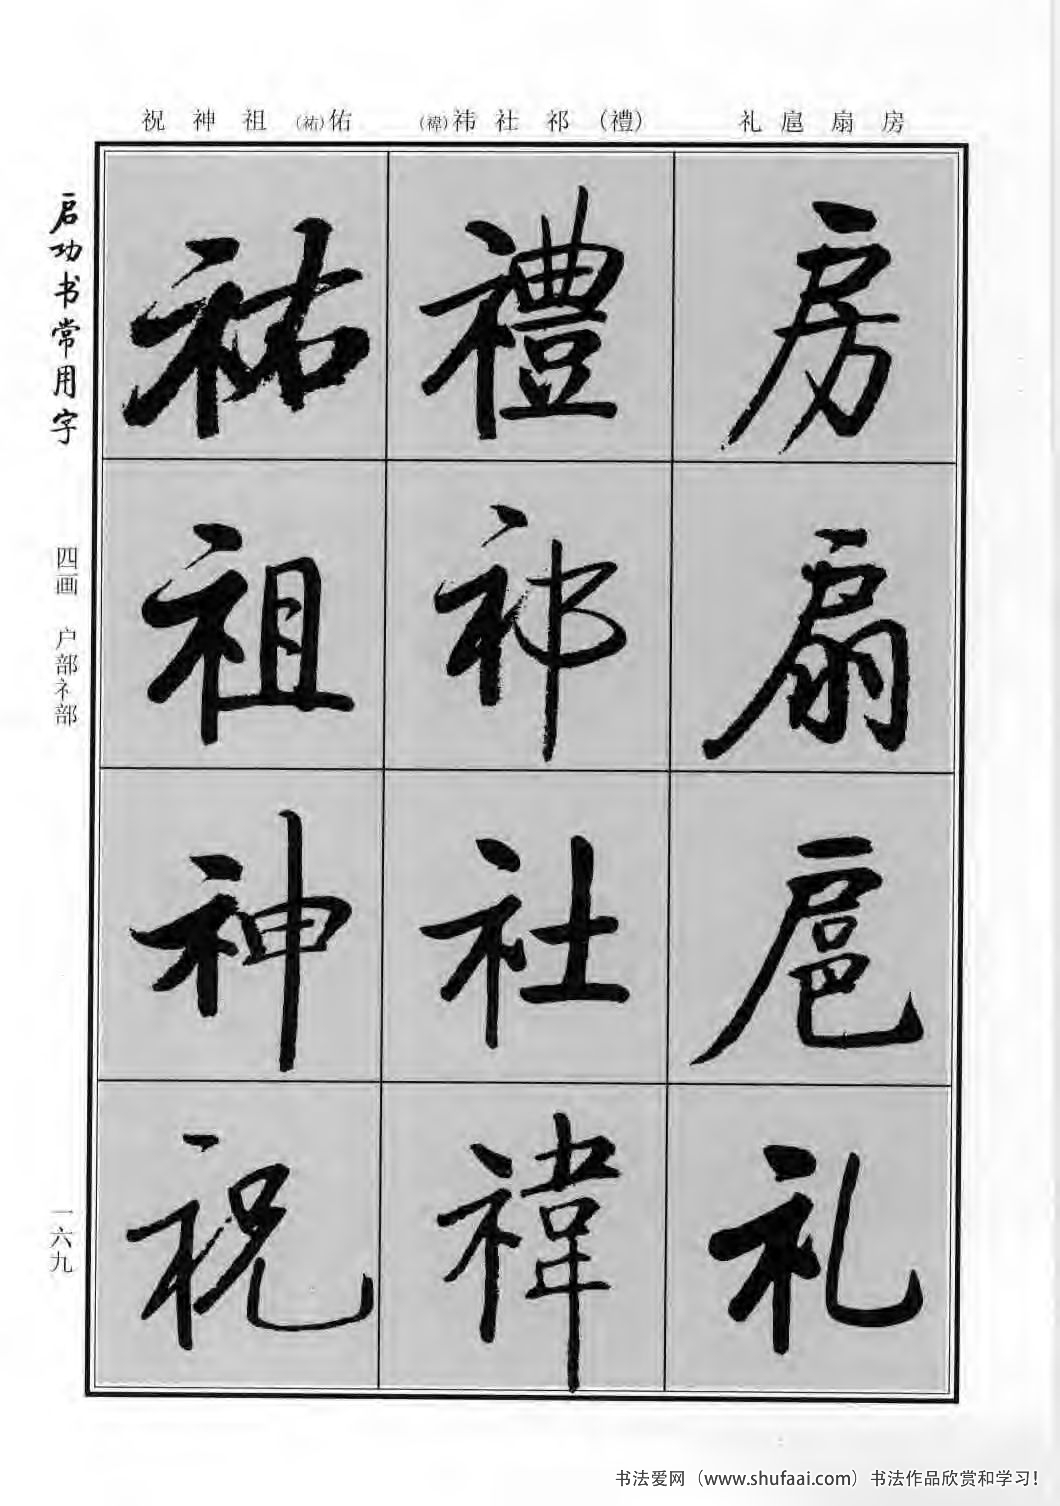 房 扇 扈 礼
(禮) 祁 社 祎(禕)
佑(祐) 祖 神 祝
房
扇
扈
礼
禮
祁
社
禕
祐
祖
神
祝
启功书常用字
四画 户部礻部
一六九
书法爱网（www.shufaai.com）书法作品欣赏和学习！